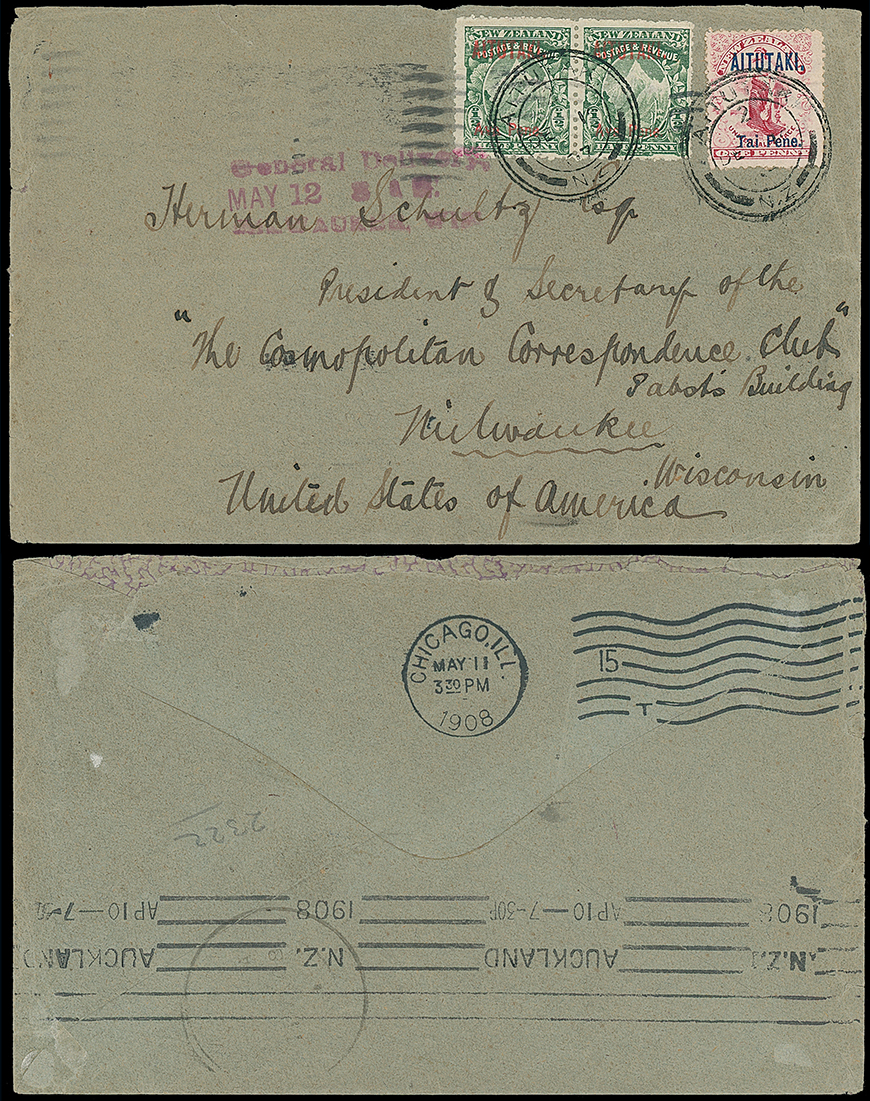 NEW ZEALAND NEW ZEALAND
POSTAGE & REVENUE POSTAGE & REVENUE
AITUTAKI. AITUTAKI.
Ava Pene. Ava Pene.
NEW ZEALAND
AITUTAKI.
Tai Pene.
ONE PENNY
AITUTAKI
N.Z
AITUTAKI
N.Z
General Delivery
MAY 12
MILWAUKEE, WIS.
Herman Schultz Esq
President & Secretary of the
"The Cosmopolitan Correspondence Club"
Pabst's Building
Milwaukee
Wisconsin
United States of America
CHICAGO, ILL.
MAY 11
3 30 PM
1908
15
T
2322
1908 AP10—7-30P 1908 AP10—7-30
N.Z. AUCKLAND N.Z. AUCKLAND